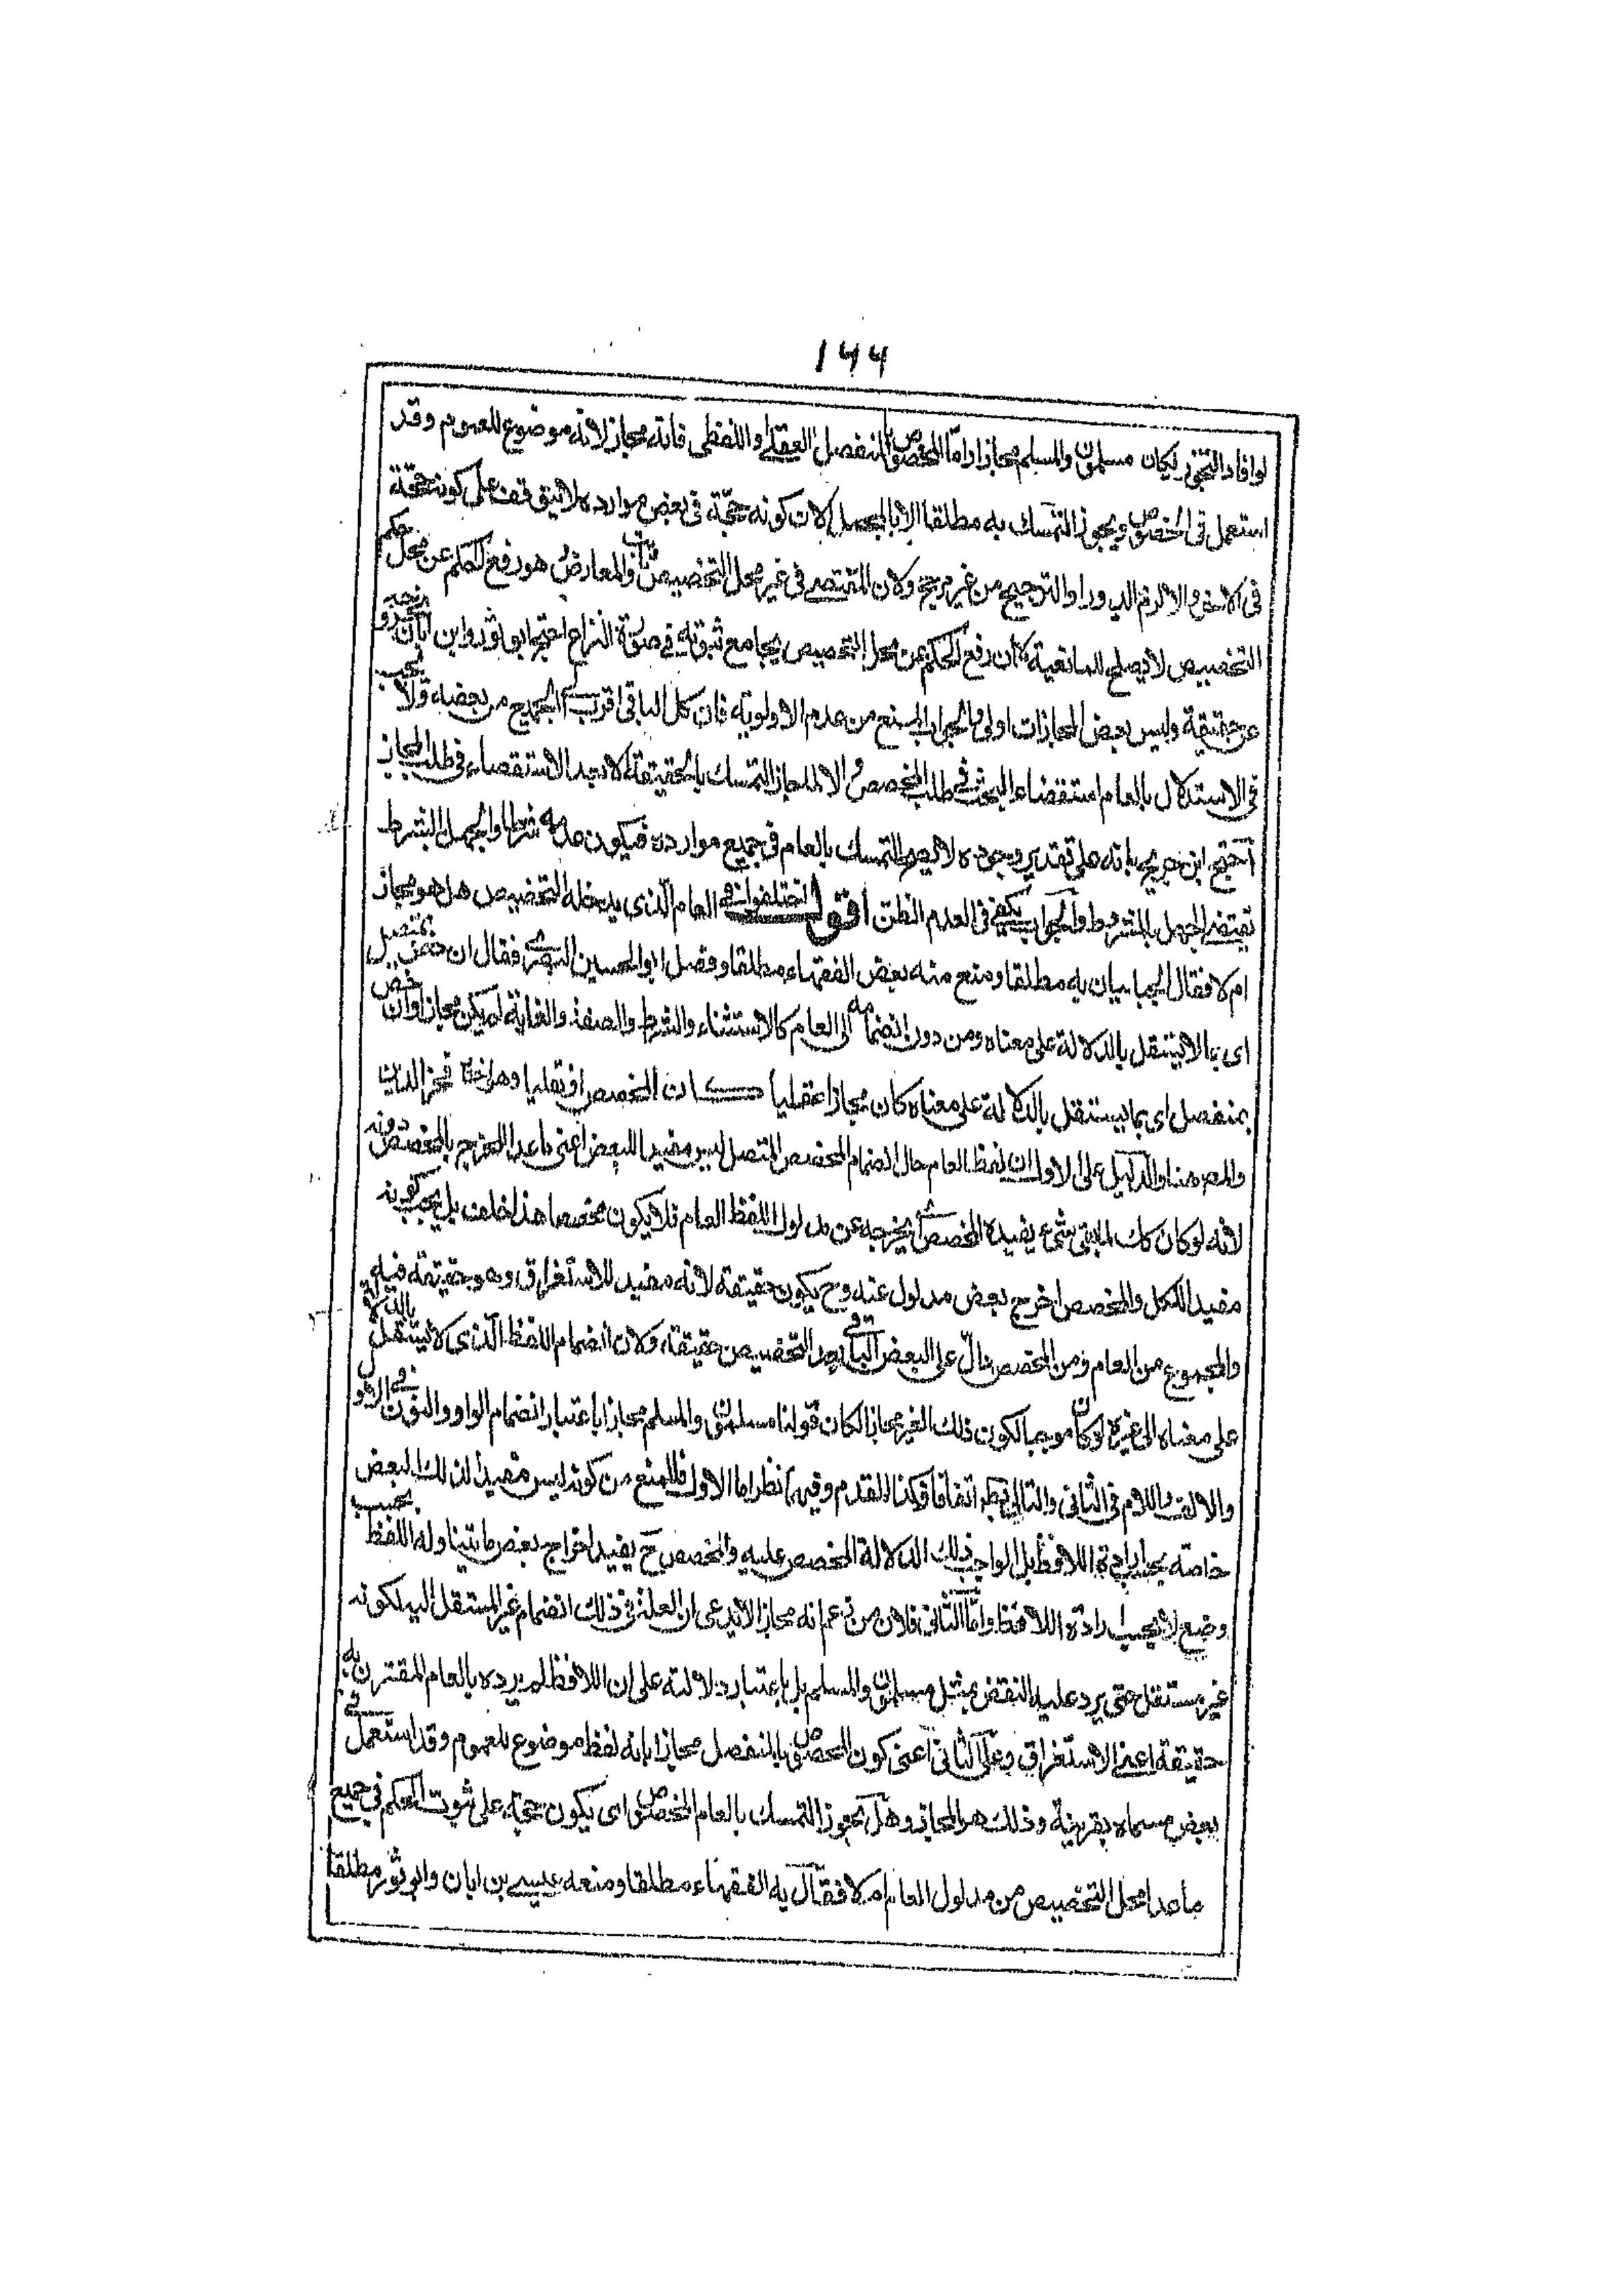 ١٤٤
لو افاد التجوز لكان مسلمون والمسلم مجازا واما المخصوص بالمنفصل العقلي او اللفظي فانه مجاز لانه موضوع للعموم وقد
استعمل في الخصوص ويجوز التمسك به مطلقا الا بالمجمل لان كونه حجّة في بعض موارده لا يتوقف على كونه حجّة
في الاخر والا لزم الدور او الترجيح من غير مرجح ولان المقتضى في غير محل التخصيص ثابت والمعارض هو رفع الحكم عن محل
التخصيص لا يصلح للمانعية لان رفع الحكم عن محل التخصيص يجامع ثبوته في صورة النزاع احتج ابو ثور وابن ابان بتجرده
عن حقيقة وليس بعض المجازات اولى والجواب المنع من عدم الاولوية فان كل الباقي اقرب الى الجميع من بعضه ولا يجب
في الاستدلال بالعام استقصاء البحث في طلب المخصص والا لما جاز التمسك بالحقيقة الا بعد الاستقصاء في طلب المجاز
احتج ابن جريج بانه على تقدير وجوده لا يصح التمسك بالعام في جميع موارده فيكون عدمه شرطا والجهل بالشرط
يقتضي الجهل بالمشروط والجواب يكفي في العدم الظن اقول اختلفوا في العام الّذى يدخله التخصيص هل هو مجاز
ام لا فقال الجبائيان به مطلقا ومنع منه بعض الفقهاء مطلقا وفصل ابو الحسين البصرى فقال ان خص بمتصل
اى بما لا يستقل بالدلالة على معناه ومن دون انضمامه الى العام كالاستثناء والشرط والصفة والغاية لم يكن مجازا وان خص
بمنفصل اى بما يستقل بالدلالة على معناه كان مجازا عقليا كان المخصص او نقليا وهو اختيار فخر الدين
والمص هنا والدليل على الاول ان لفظ العام حال انضمام المخصص المتصل ليس مفيدا للبعض اعنى ما عدا المخرج بالمخصص وحده
لانه لو كان كك لما بقى شئ يفيده المخصص اى يخرجه عن مدلول اللفظ العام فلا يكون مخصصا هذا خلف بل يجب كونه
مفيدا للكل والمخصص اخرج بعض مدلول عنه وح يكون حقيقة لانه مفيد للاستغراق وهو حقيقة فيه
والمجموع من العام ومن المخصص دالّ على البعض الباقي بعد التخصيص حقيقة ولان انضمام اللفظ الّذى لا يستقل بالدلالة
على معناه الى غيره لو كان موجبا لكون ذلك الغير مجازا لكان قولنا مسلمون والمسلم مجازا باعتبار انضمام الواو والنون في الاول
والالف واللام في الثانى والتالى بط اتفاقا فكذا المقدم وفيهما نظر اما الاول فللمنع من كونه ليس مفيدا لذلك البعض
خاصة بحسب ارادة اللافظ بل الواجب ذلك الدلالة المخصص عليه والمخصص ح يفيد اخراج بعض ما يتناوله اللفظ بحسب
وضع لا بحسب ارادة اللافظ وامّا الثانى فلان من زعم انه مجاز لا يدعى ان العلة في ذلك انضمام غير المستقل اليه لكونه
غير مستقل حتى يرد عليه النقض بمثل مسلمون والمسلم بل باعتبار دلالته على ان اللافظ لم يرده بالعام المقترن به
حقيقة اعنى الاستغراق وعلى الثانى اعنى كون المخصوص بالمنفصل مجازا بانه لفظ موضوع للعموم وقد استعمل في
بعض مسماه بقرينة وذلك هو المجاز وهل يجوز التمسك بالعام المخصوص اى يكون حجة على ثبوت الحكم في جميع
ما عدا محل التخصيص من مدلول العام ام لا فقال به الفقهاء مطلقا ومنعه عيسى بن ابان وابو ثور مطلقا